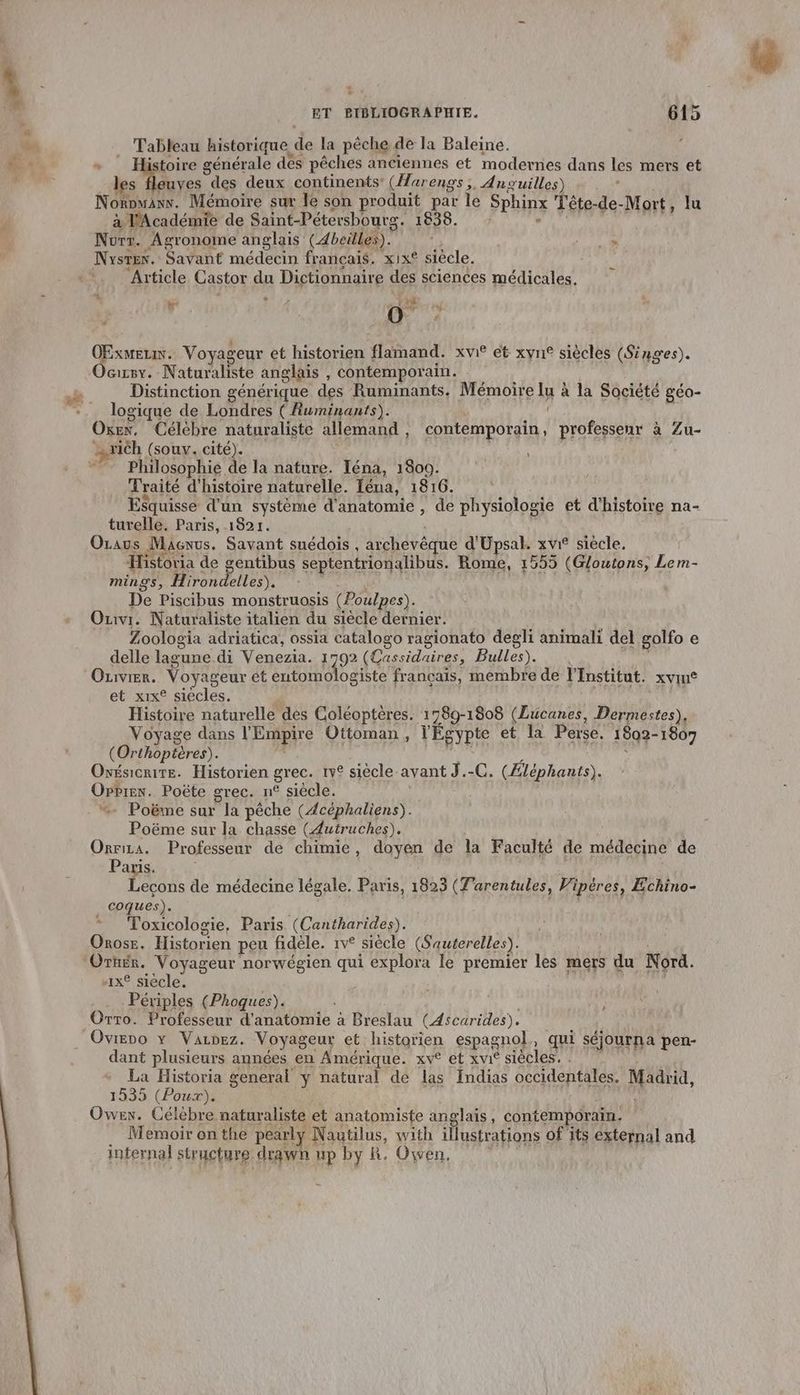 ET BIBLIOGRAPHIE. 615
Tableau historique de la pêche de la Baleine.
Histoire générale des pêches anciennes et modernes dans les mers et
les fleuves des deux continents (Harengs, Anguilles)
NORDMANN. Mémoire sur le son produit par le Sphinx Tête-de-Mort, lu
à l'Académie de Saint-Pétersbourg. 1838.
NUTT. Agronome anglais (Abeilles).
NYSTEN. Savant médecin français. XIXe siècle.
Article Castor du Dictionnaire des sciences médicales.
O
OEXMELIN. Voyageur et historien flamand. XVIe et XVIIe siècles (Singes).
OGILBY. Naturaliste anglais, contemporain.
Distinction générique des Ruminants. Mémoire lu à la Société géo-
logique de Londres (Ruminants).
OKEN. Célèbre naturaliste allemand, contemporain, professeur à Zu-
rich (souv. cité).
Philosophie de la nature. Iéna, 1809.
Traité d'histoire naturelle. Iéna, 1816.
Esquisse d'un système d'anatomie, de physiologie et d'histoire na-
turelle. Paris, 1821.
OLAUS MAGNUS. Savant suédois, archevêque d'Upsal. XVIe siècle.
Historia de gentibus septentrionalibus. Rome, 1555 (Gloutons, Lem-
mings, Hirondelles).
De Piscibus monstruosis (Poulpes).
OLIVI. Naturaliste italien du siècle dernier.
Zoologia adriatica, ossia catalogo ragionato degli animali del golfo e
delle lagune di Venezia. 1792 (Cassidaires, Bulles).
OLIVIER. Voyageur et entomologiste français, membre de l'Institut. XVIIIe
et XIXe siècles.
Histoire naturelle des Coléoptères. 1789-1808 (Lucanes, Dermestes).
Voyage dans l'Empire Ottoman, l'Égypte et la Perse. 1802-1807
(Orthoptères).
ONÉSICRITE. Historien grec. IVe siècle avant J.-C. (Éléphants).
OPPIEN. Poëte grec. IIe siècle.
Poëme sur la pêche (Acéphaliens).
Poëme sur la chasse (Autruches).
ORFILA. Professeur de chimie, doyen de la Faculté de médecine de
Paris.
Leçons de médecine légale. Paris, 1823 (Tarentules, Vipères, Échino-
coques).
Toxicologie. Paris (Cantharides).
OROSE. Historien peu fidèle. IVe siècle (Sauterelles).
OTHÉR. Voyageur norwégien qui explora le premier les mers du Nord.
IXe siècle.
Périples (Phoques).
OTTO. Professeur d'anatomie à Breslau (Ascarides).
OVIEDO Y VALDEZ. Voyageur et historien espagnol, qui séjourna pen-
dant plusieurs années en Amérique. XVe et XVIe siècles.
La Historia general y natural de las Indias occidentales. Madrid,
1535 (Poux).
OWEN. Célèbre naturaliste et anatomiste anglais, contemporain.
Memoir on the pearly Nautilus, with illustrations of its external and
internal structure drawn up by R. Owen.